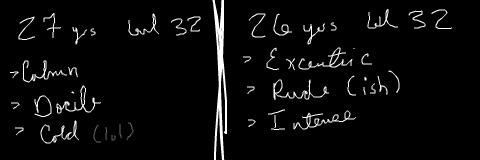 27 yrs lvl 32
> Calmn
> Docile
> Cold (lol)
26 yrs lvl 32
> Excentric
> Rude (ish)
> Intense